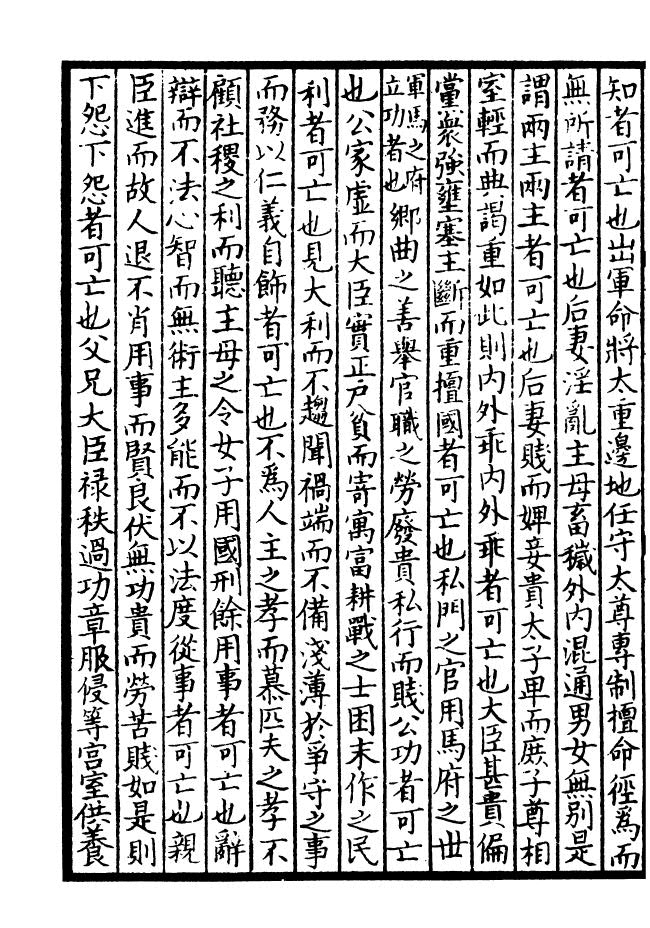 知者可亡也出軍命將太重邊地任守太尊專制擅命徑為而
無所請者可亡也后妻淫亂主母畜穢外内混通男女無别是
謂兩主兩主者可亡也后妻賤而婢妾貴太子卑而庶子尊相
室輕而典謁重如此則内外乖内外乖者可亡也大臣甚貴偏
黨衆强壅塞主斷而重擅國者可亡也私門之官用馬府之世
軍馬之府立功者也鄉曲之善舉官職之勞廢貴私行而賤公功者可亡
也公家虚而大臣實正户貧而寄寓富耕戰之士困末作之民
利者可亡也見大利而不趨聞禍端而不備淺薄於爭守之事
而務以仁義自飾者可亡也不為人主之孝而慕匹夫之孝不
顧社稷之利而聽主母之令女子用國刑餘用事者可亡也辭
辯而不法心智而無術主多能而不以法度從事者可亡也親
臣進而故人退不肖用事而賢良伏無功貴而勞苦賤如是則
下怨下怨者可亡也父兄大臣禄秩過功章服侵等宫室供養